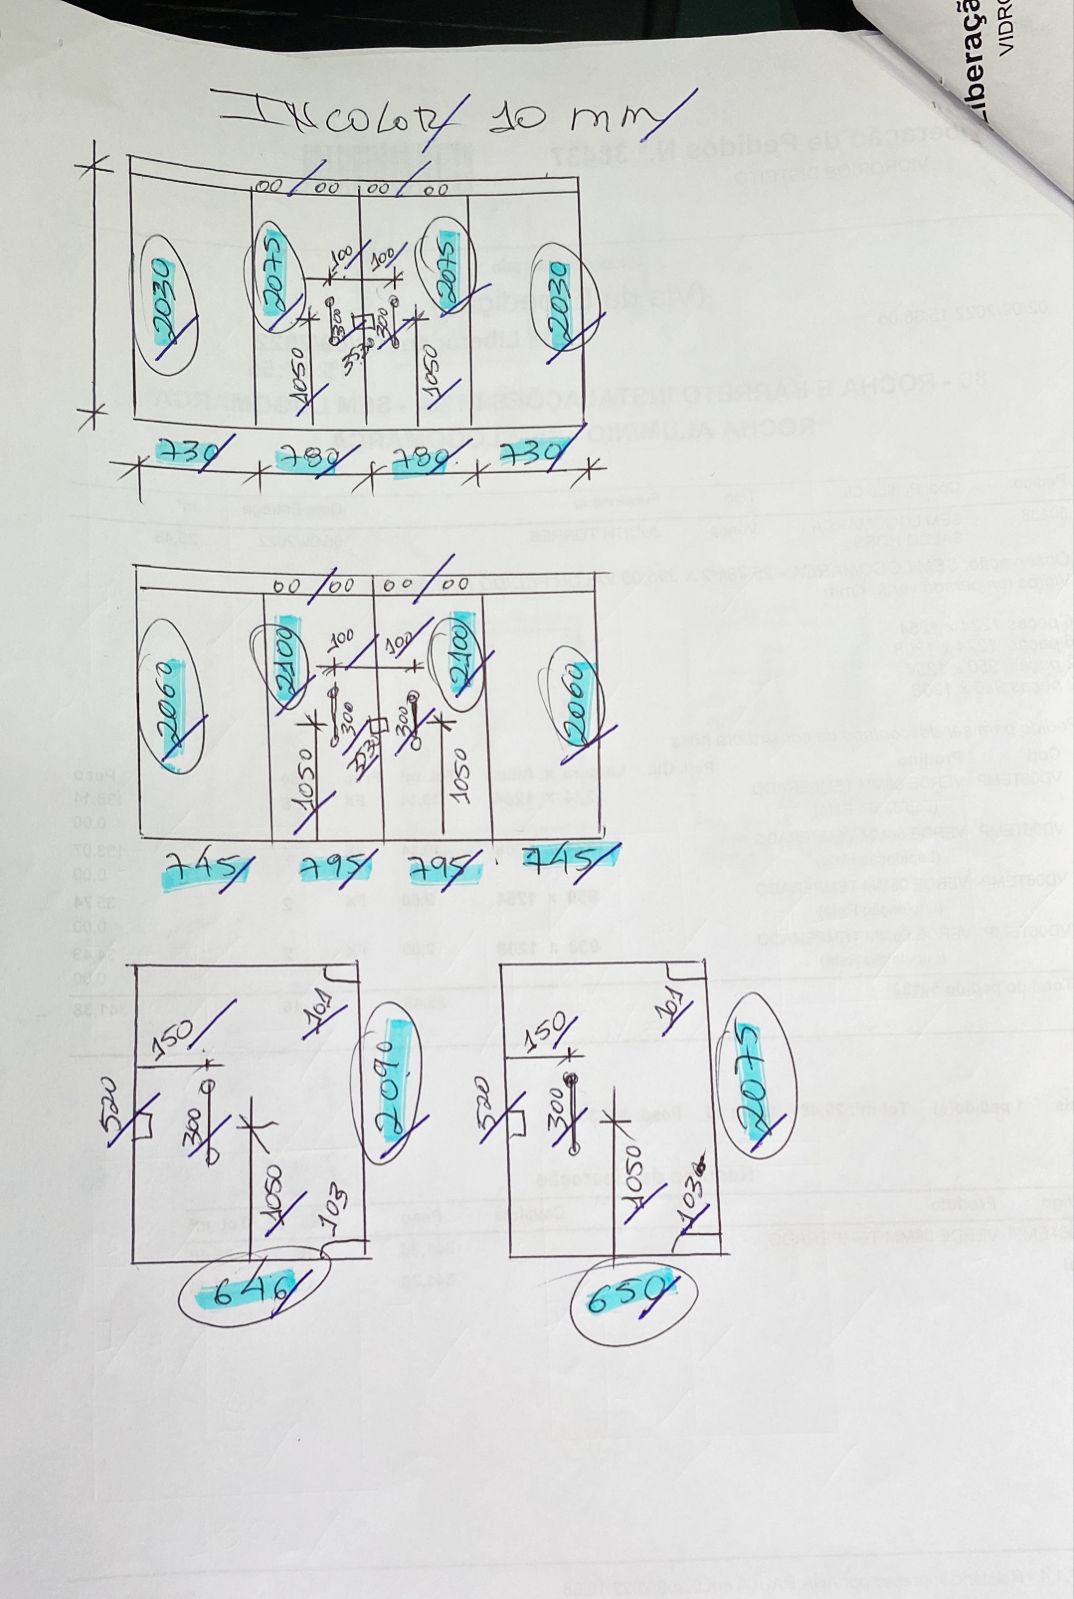 INCOLOR 10 mm
Liberaçã
VIDRO
00 00 00 00
2030 2075 100 100 2075 2030
300 300
1050 1050
730 780 780 730
00 00 00 00
2060 2100 100 100 2100 2060
300 300
1050 1050
745 795 795 745
101
150
520 300 2090
1050
103
646
101
150
520 300 2075
1050
103
650